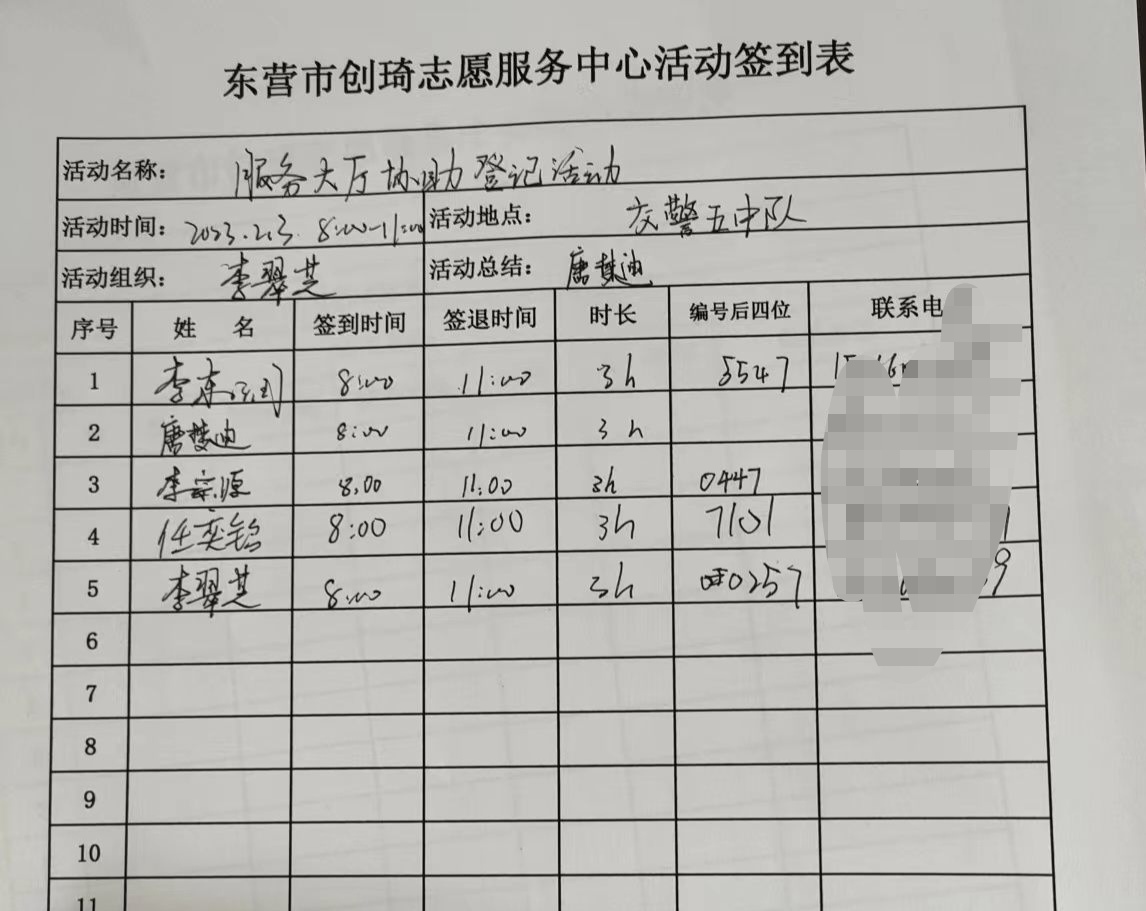 东营市创琦志愿服务中心活动签到表
活动名称： 服务大厅协助登记活动
活动时间： 2023.2.3 8:00-11:00 活动地点： 交警五中队
活动组织： 李翠芝 活动总结： 唐梦迪
序号 姓 名 签到时间 签退时间 时长 编号后四位 联系电
1 李东 8:00 11:00 3h 5547
2 唐梦迪 8:00 11:00 3h
3 李宗源 8:00 11:00 3h 0447
4 任奕铭 8:00 11:00 3h 7101
5 李翠芝 8:00 11:00 3h 0257
6
7
8
9
10
11